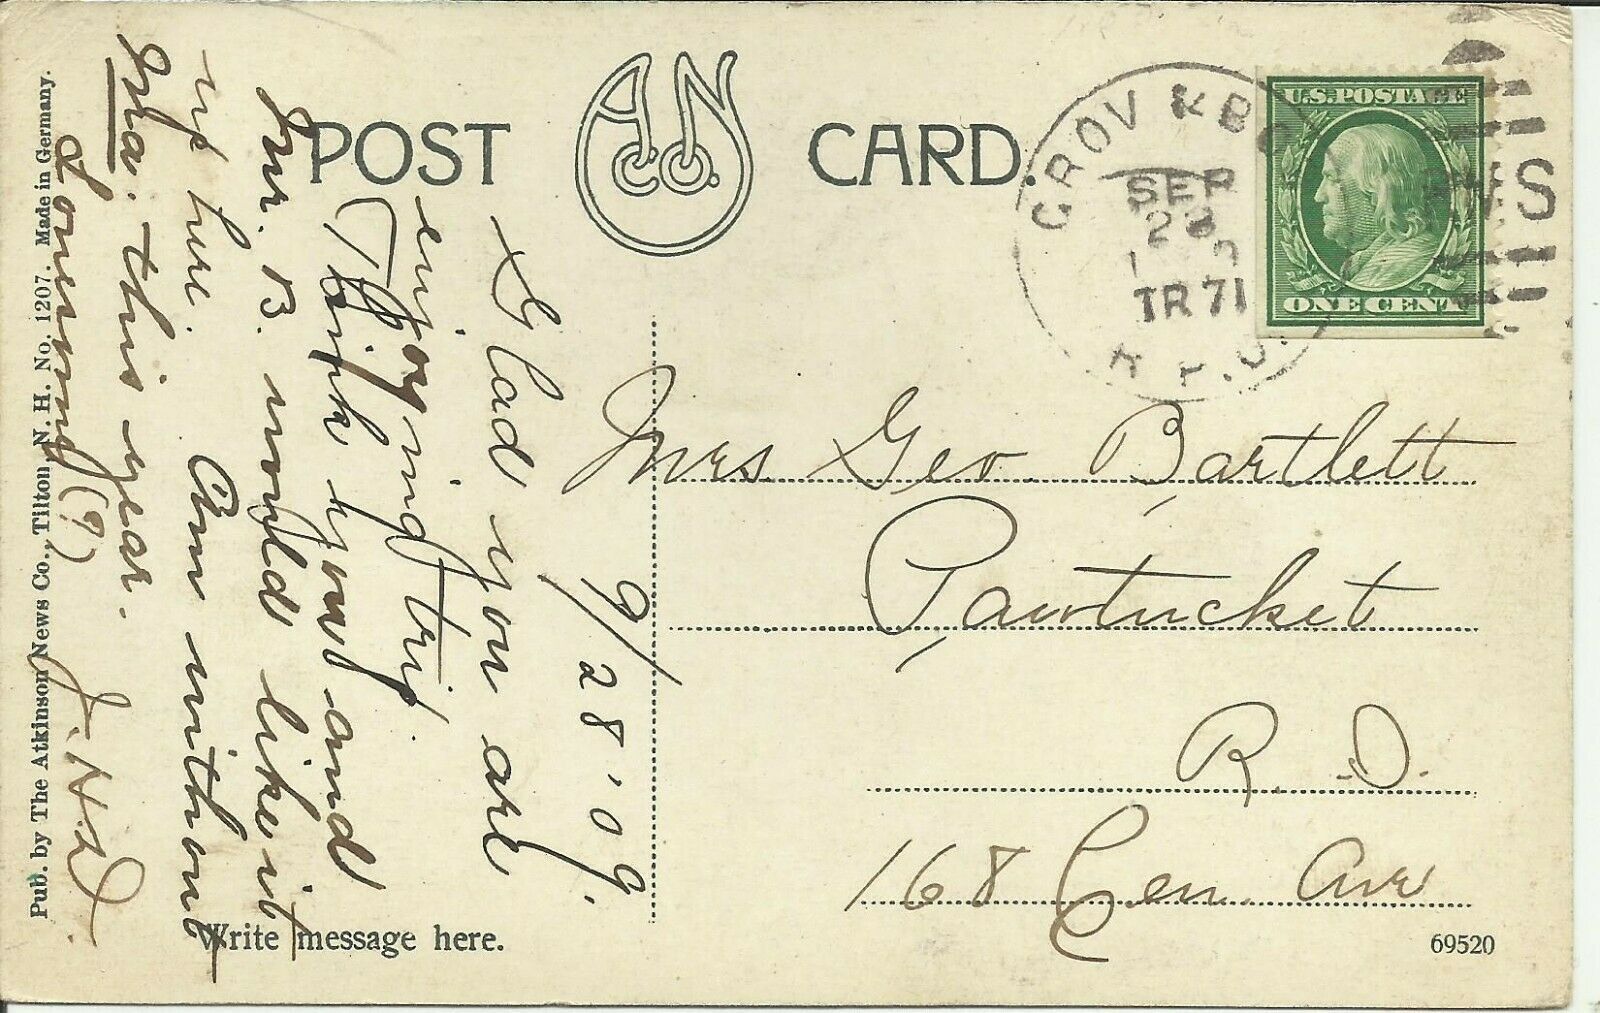 POST CARD.
A. N. Co.
GROV & BO
SEP
28
TR 71
R.P.O.
U.S. POSTAGE
ONE CENT
MS
9/28 '09.
Glad you are
enjoying trip.
Think you and
Mr. B. would like it
up here. Am without
Ma: this year.
Lonesome (?)
J. H. D.
Mrs. Geo. Bartlett
Pawtucket
R. I.
168 Cen. Ave
Write message here.
69520
Pub. by The Atkinson News Co., Tilton N. H. No. 1207. Made in Germany.